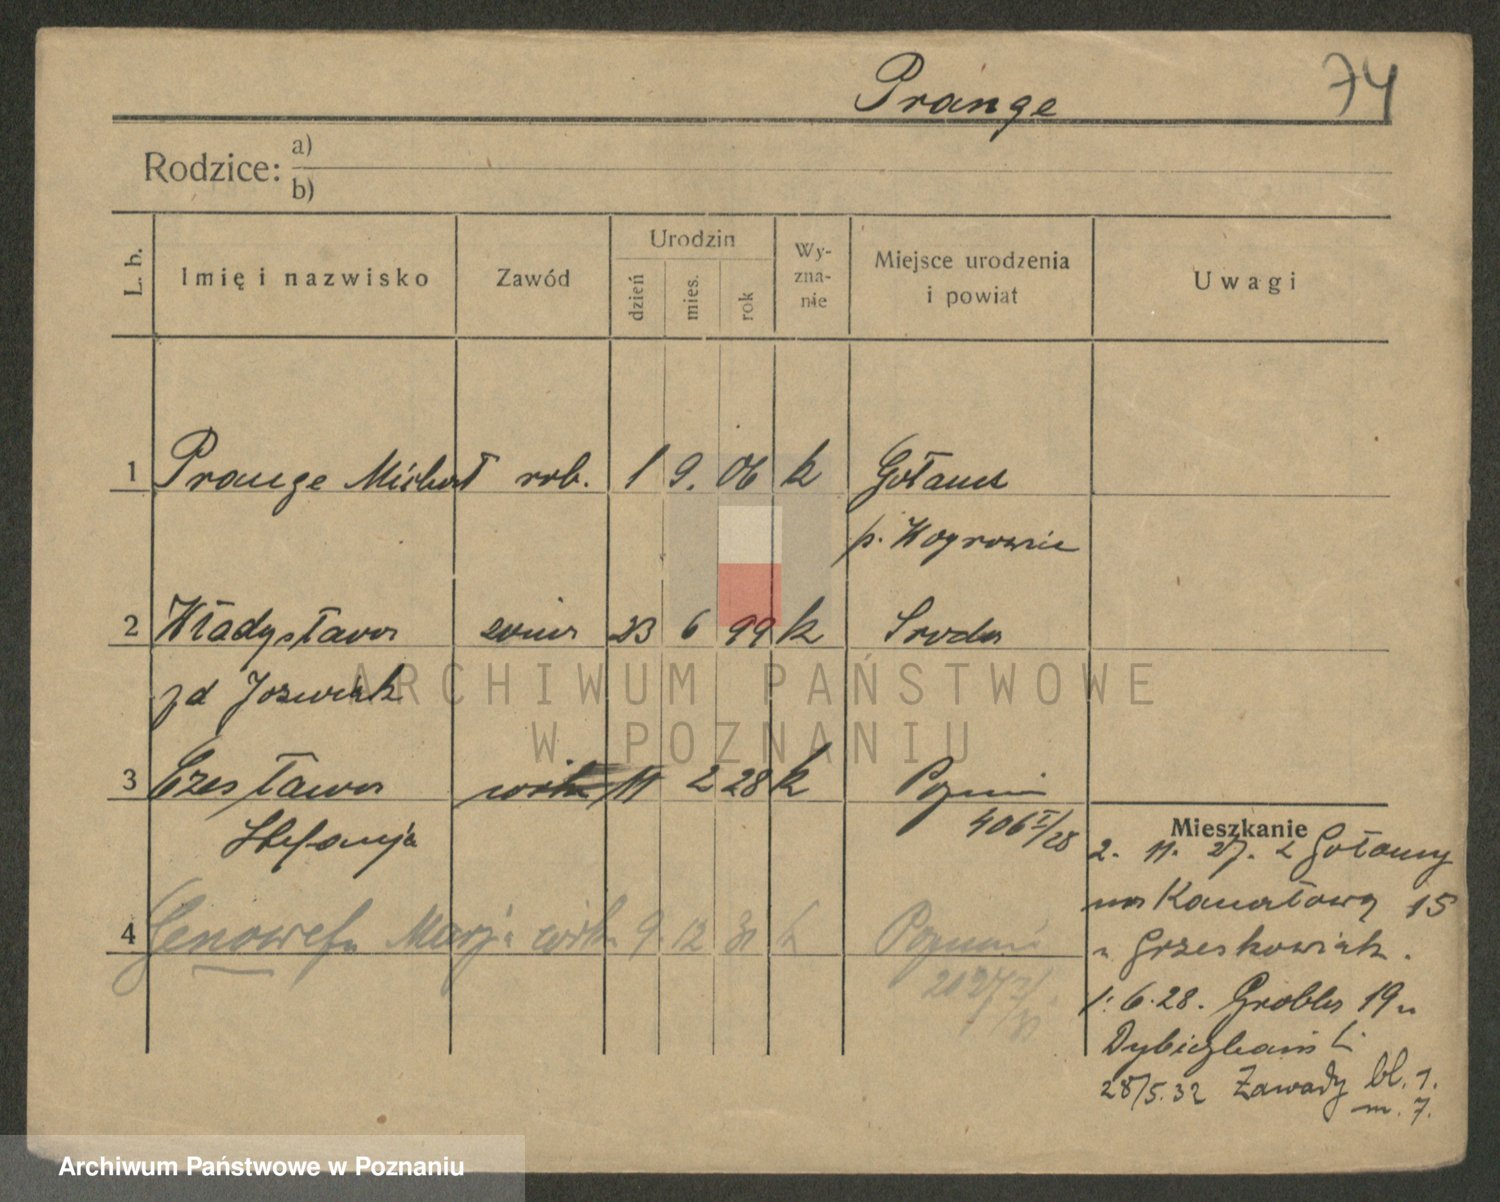 Prange 74
Rodzice: a)
b)
L. b. Imię i nazwisko Zawód Urodzin dzień mies. rok Wy-zna-nie Miejsce urodzenia i powiat Uwagi
1 Prange Michał rob. 1 9. 06 k Gołańcz
p. Wągrowiec
2 Władysława 23 6 99 k Środa
zd Jozwiak
3 Czesława 11 2 28 k Poznań
Stefanja 406 I/28
Mieszkanie
2. 11. 27. z Gołańczy
na Kanałową 15
u Grzeskowiak.
4 Genowefa Marja córka 9 12 31 k Poznań
2027
1. 6. 28. Grobla 19 u
28/5. 32 Zawady bl. 1.
m. 7.
ARCHIWUM PAŃSTWOWE
W POZNANIU
Archiwum Państwowe w Poznaniu